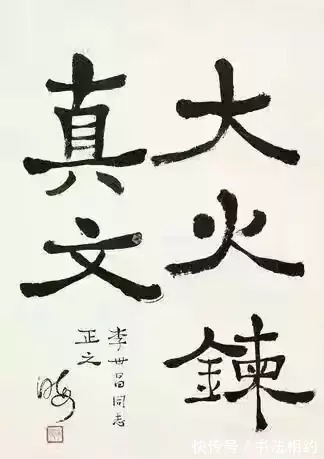 大火鍊
真文
李世昌同志
正之
快传号/书法相约